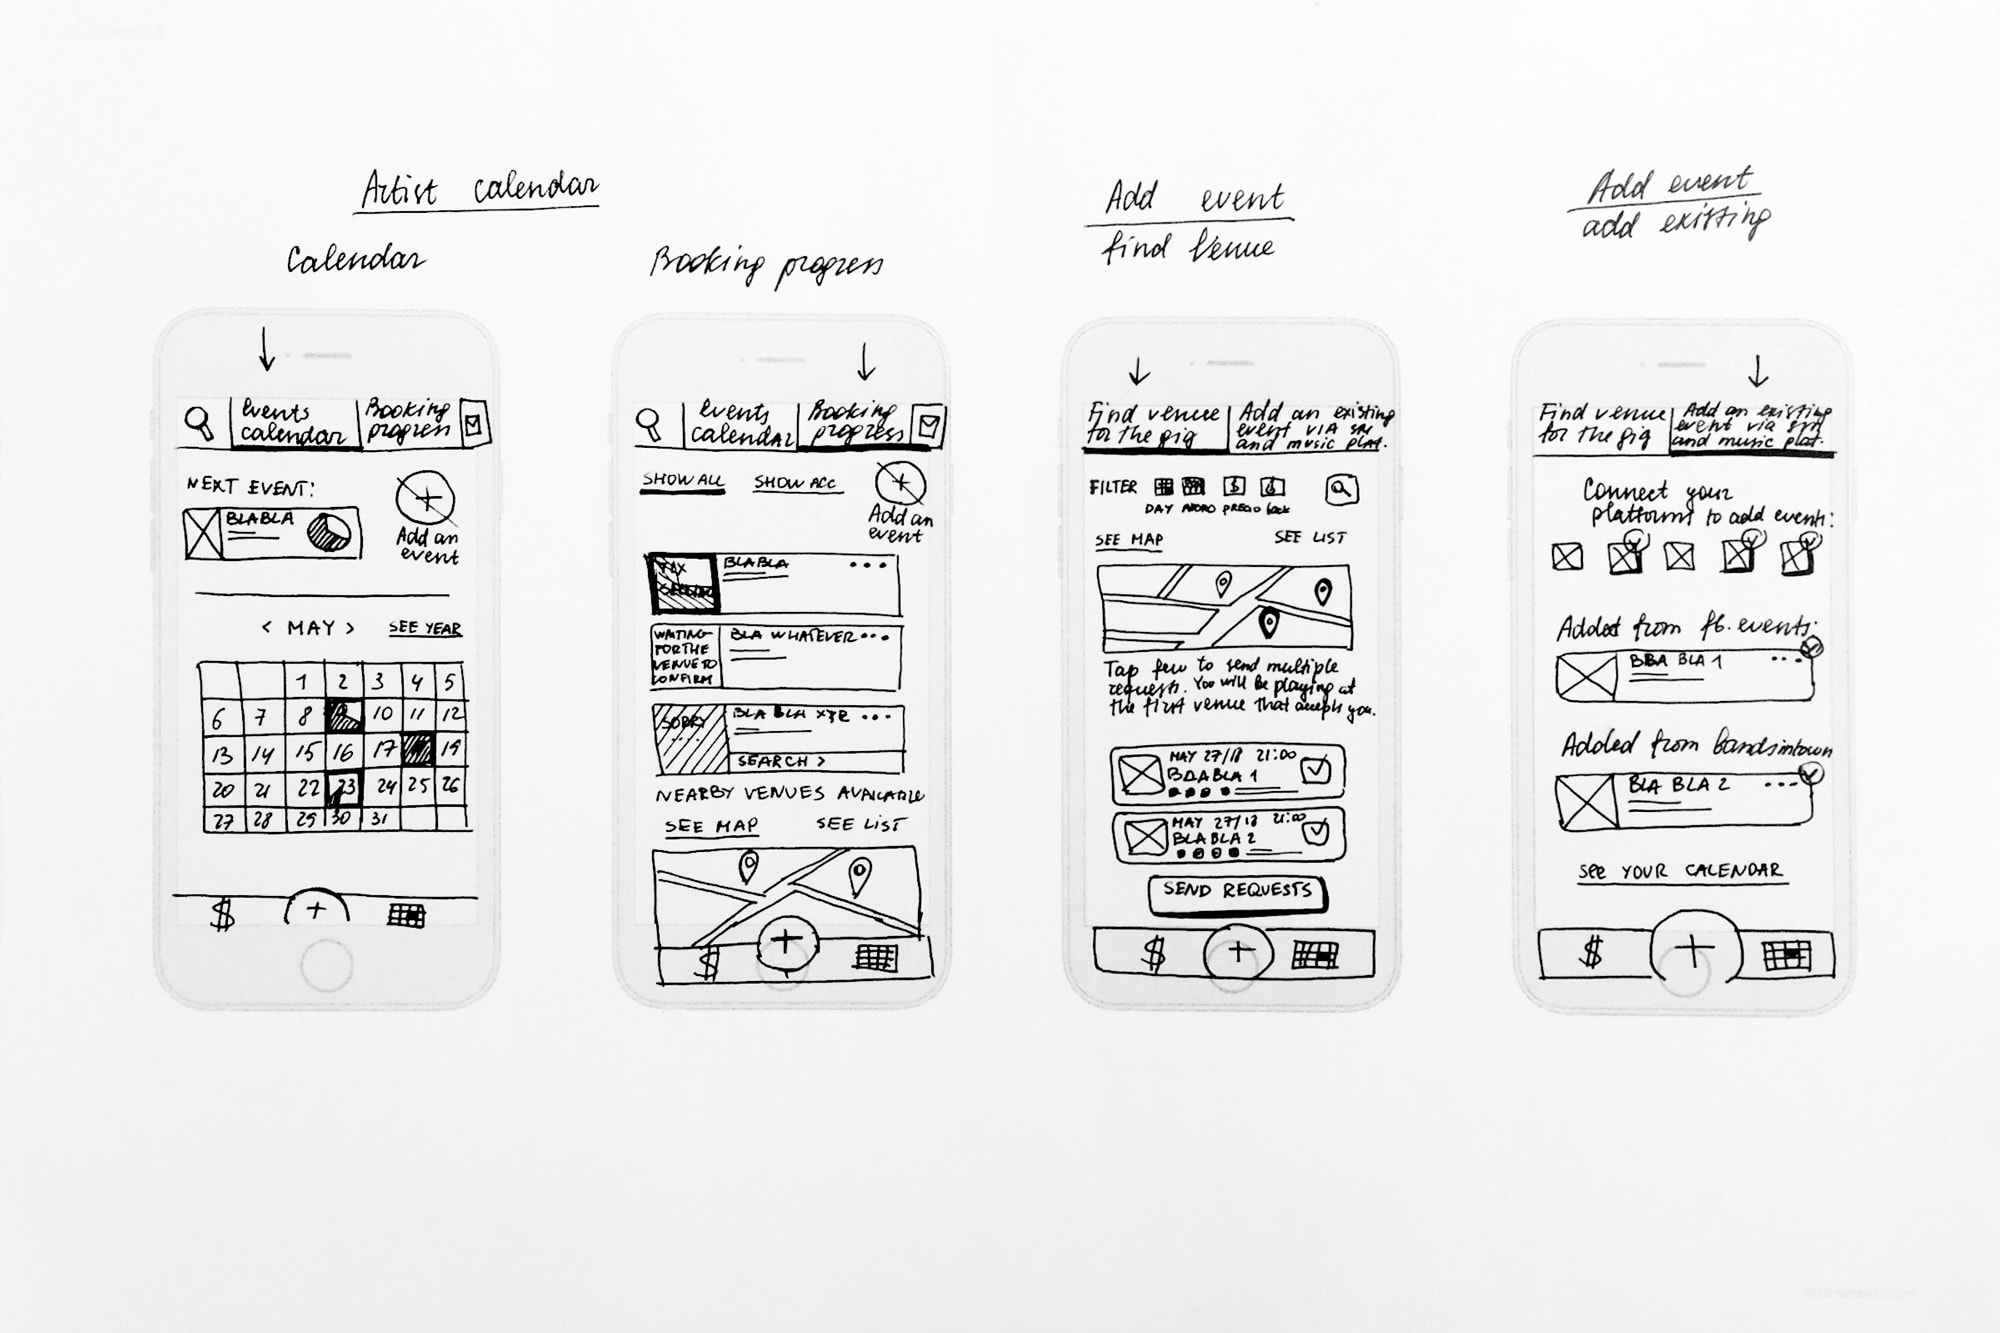 Artist calendar
Calendar
Events
calendar
Booking
progress
NEXT EVENT:
BLABLA
Add an
event
< MAY >
SEE YEAR
1 2 3 4 5
6 7 8 10 11 12
13 14 15 16 17 19
20 21 22 23 24 25 26
27 28 29 30 31
$
+
Booking progress
Events
calendar
Booking
progress
SHOW ALL
SHOW ACC
Add an
event
BLABLA
WAITING
FOR THE
VENUE TO
CONFIRM
BLA WHATEVER
SORRY
BLA BLA
SEARCH >
NEARBY VENUES AVAILABLE
SEE MAP
SEE LIST
$
+
Add event
find Venue
Find venue
for the gig
Add an existing
event VIA
and music plat.
FILTER
$
DAY
SEE MAP
SEE LIST
Tap few to send multiple
requests. You will be playing at
the first venue that accepts you.
MAY 27/18 21:00
BLABLA 1
MAY 27/18 21:00
BLABLA 2
SEND REQUESTS
$
+
Add event
add existing
Find venue
for the gig
Add an existing
event via
and music plat.
Connect your
platforms to add events:
Added from fb. events:
BBA BLA 1
Added from bandsintown
BLA BLA 2
See YOUR CALENDAR
$
+